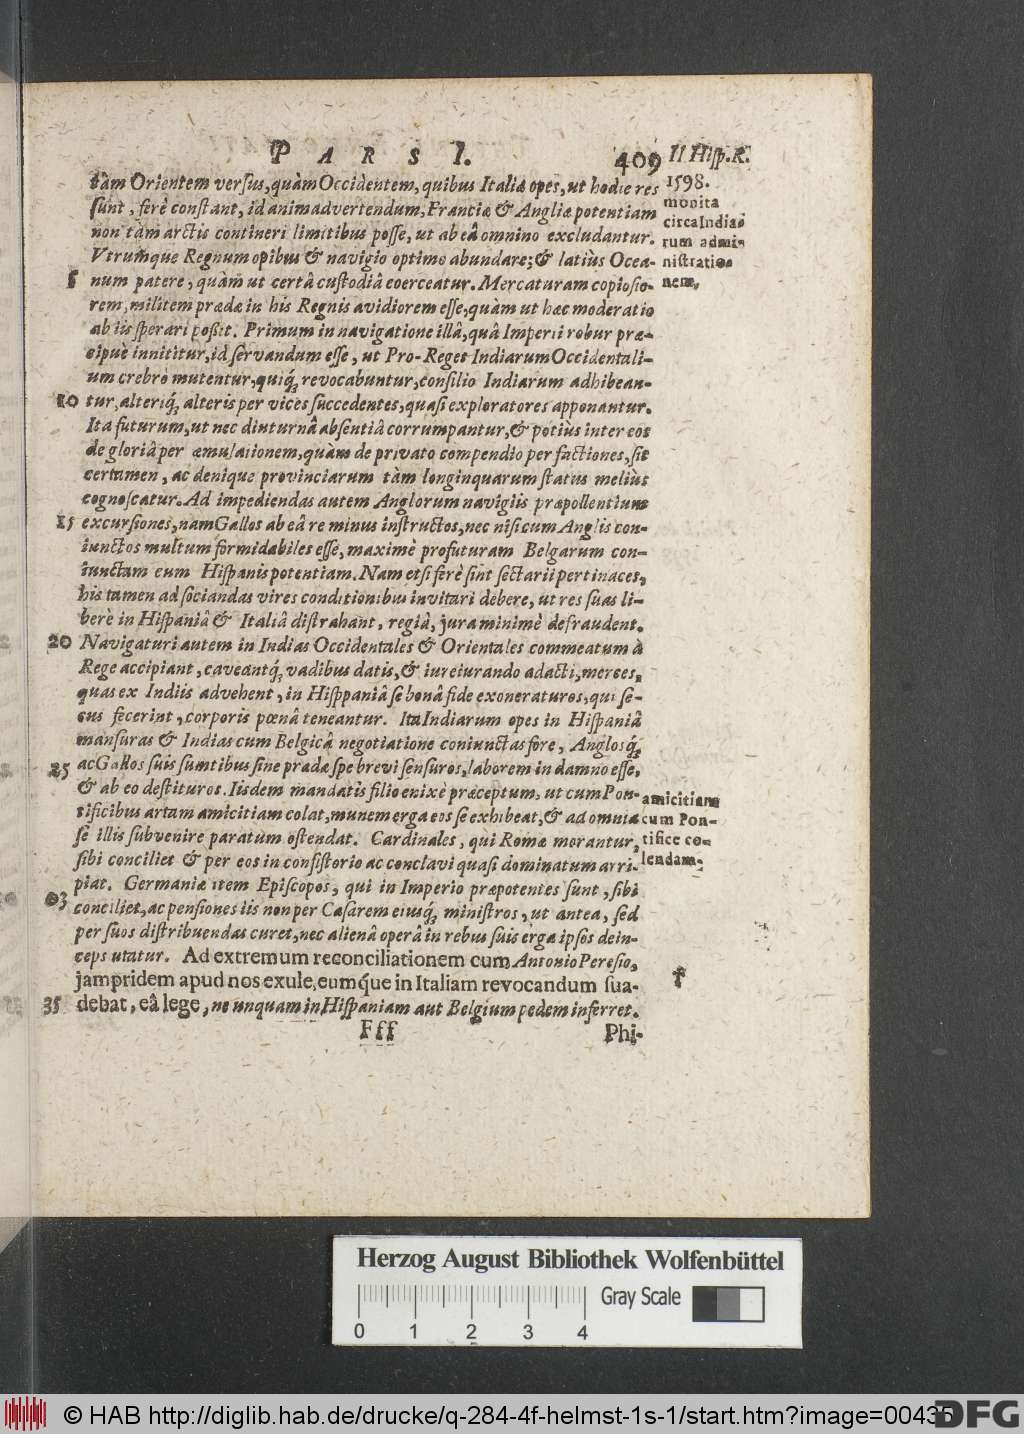 PARS I. 409 II Hisp. R.
tàm Orientem versus, quàm Occidentem, quibus Italiæ opes, ut hodie res 1598.
sunt, ferè constant, id animadvertendum, Franciæ & Angliæ potentiam monita
non tàm arctis contineri limitibus posse, ut ab eâ omnino excludantur. circa Indiaꝛ
Vtrumque Regnum opibus & navigio optimo abundare; & latiùs Ocea- rum admi-
5 num patere, quàm ut certâ custodiâ coerceatur. Mercaturam copiosio- nistratio-
rem, militem prædæ in his Regnis avidiorem esse, quàm ut hæc moderatio nem,
ab iis sperari possit. Primum in navigatione illâ, quâ Imperii robur præ-
cipuè innititur, id servandum esse, ut Pro-Reges Indiarum Occidentali-
um crebrò mutentur, quiq́; revocabuntur, consilio Indiarum adhibean-
10 tur, alteriq́; alteris per vices succedentes, quasi exploratores apponantur.
Ita futurum, ut nec diuturnâ absentiâ corrumpantur, & potiùs inter eos
de gloriâ per æmulationem, quàm de privato compendio per factiones, sit
certamen, ac denique provinciarum tàm longinquarum status meliùs
cognoscatur. Ad impediendas autem Anglorum navigiis præpollentium
15 excursiones, nam Gallos ab eâ re minus instructos, nec nisi cum Anglis con-
iunctos multum formidabiles esse, maximè profuturam Belgarum con-
iunctam cum Hispanis potentiam. Nam etsi ferè sint sectarii pertinaces,
his tamen ad sociandas vires conditionibus invitari debere, ut res suas li-
berè in Hispaniâ & Italiâ distrahant, regia, jura minimè defraudent.
20 Navigaturi autem in Indias Occidentales & Orientales commeatum à
Rege accipiant, caveantq́; vadibus datis, & iureiurando adacti, merces,
quas ex Indiis advehent, in Hisppaniâ se bonâ fide exoneraturos, qui se-
cus fecerint, corporis pœnâ teneantur. Ita Indiarum opes in Hispaniâ
mansuras & Indias cum Belgicâ negotiatione coniunctas fore, Anglosq́;
25 ac Gallos suis sumtibus sine prædæ spe brevi sensuros, laborem in damno esse,
& ab eo destituros. Iisdem mandatis filio enixè præceptum, ut cum Pon- amicitiam
tificibus artam amicitiam colat, munem erga eos se exhibeat, & ad omnia cum Pon-
se illis subvenire paratum ostendat. Cardinales, qui Romæ morantur, tifice co-
sibi conciliet & per eos in consistorio ac conclavi quasi dominatum arri- lendam;
piat. Germaniæ item Episcopos, qui in Imperio præpotentes sunt, sibi
03 conciliet, ac pensiones iis non per Cæsarem eiusq́; ministros, ut antea, sed
per suos distribuendas curet, nec alienâ operâ in rebus suis erga ipsos dein-
ceps utatur. Ad extremum reconciliationem cum Antonio Peresio,
jampridem apud nos exule, eumq́ue in Italiam revocandum sua- †
35 debat, eâ lege, ne unquam in Hispaniam aut Belgium pedem inferret.
Fff Phi-
Herzog August Bibliothek Wolfenbüttel
0 1 2 3 4 Gray Scale
© HAB http://diglib.hab.de/drucke/q-284-4f-helmst-1s-1/start.htm?image=00435 DFG